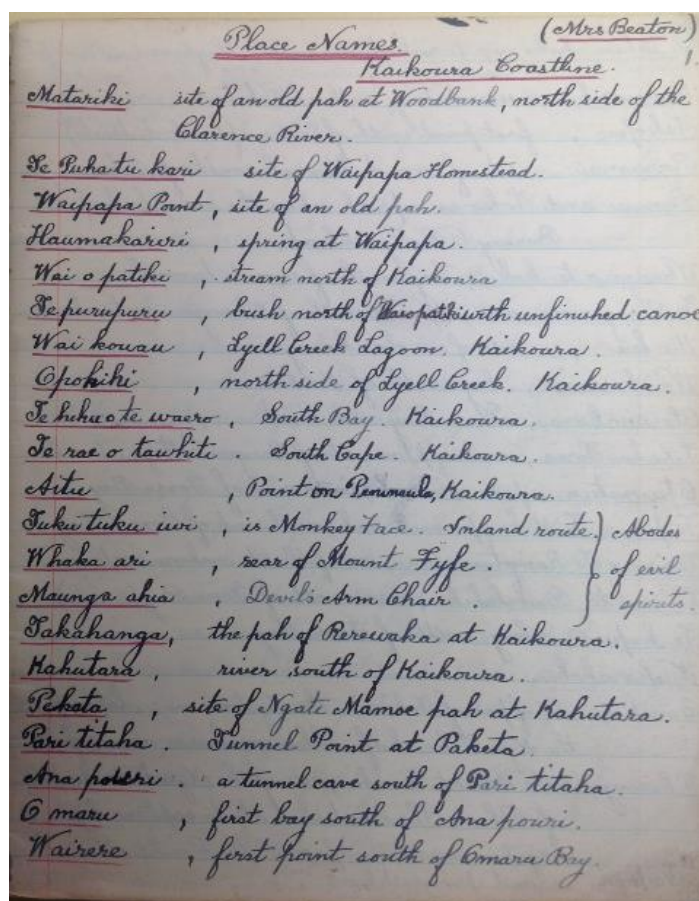 (Mrs Beaton)
Place Names. 1.
Kaikoura Coastline.
Matariki site of an old pah at Woodbank, north side of the
Clarence River.
Te Puhatu kari site of Waipapa Homestead.
Waipapa Point, site of an old pah.
Haumakariri, spring at Waipapa.
Wai o patiki, stream north of Kaikoura
Te purupuru, bush north of Waiopatiki with unfinished canoe
Wai kowau, Lyell Creek Lagoon. Kaikoura.
Opokihi, north side of Lyell Creek. Kaikoura.
Te hiku o te waero, South Bay. Kaikoura.
Te rae o tawhiti. South Cape. Kaikoura.
Aitu, Point on Peninsula, Kaikoura.
Tuku tuku iwi, is Monkey Face. Inland route. } Abodes
Whaka ari, rear of Mount Fyfe. } of evil
Maunga ahia, Devil's Arm Chair. } spirits
Takahanga, the pah of Rerewaka at Kaikoura.
Kahutara, river south of Kaikoura.
Peketa, site of Ngati Mamoe pah at Kahutara.
Pari titaha. Tunnel Point at Paketa.
Ana pouri. a tunnel cave south of Pari titaha.
O maru, first bay south of Ana pouri.
Wairere, first point south of Omaru Bay.